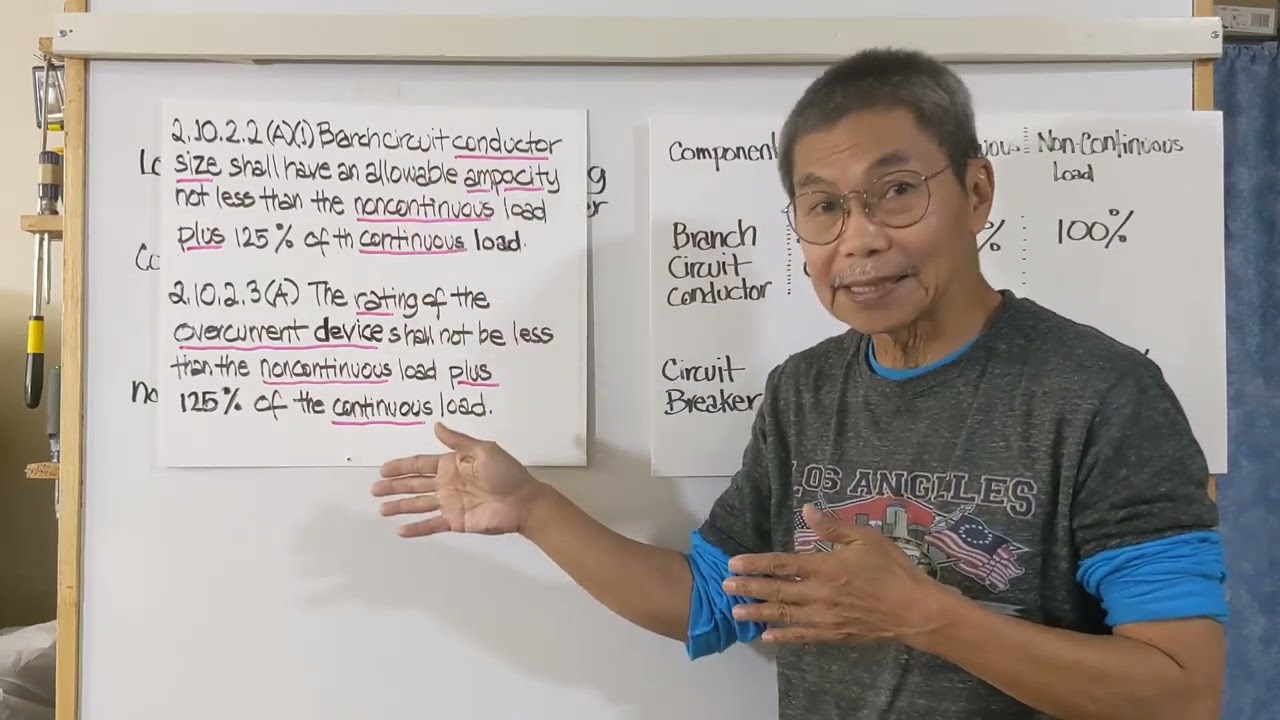 2.10.2.2(A)(1) Branchcircuit conductor
size shall have an allowable ampacity
not less than the noncontinuous load
plus 125% of th continuous load.
2.10.2.3(A) The rating of the
overcurrent device shall not be less
than the noncontinuous load plus
125% of the continuous load.
Component
Non-Continuous
Load
Branch
Circuit
Conductor
%
100%
Circuit
Breaker
LOS ANGELES